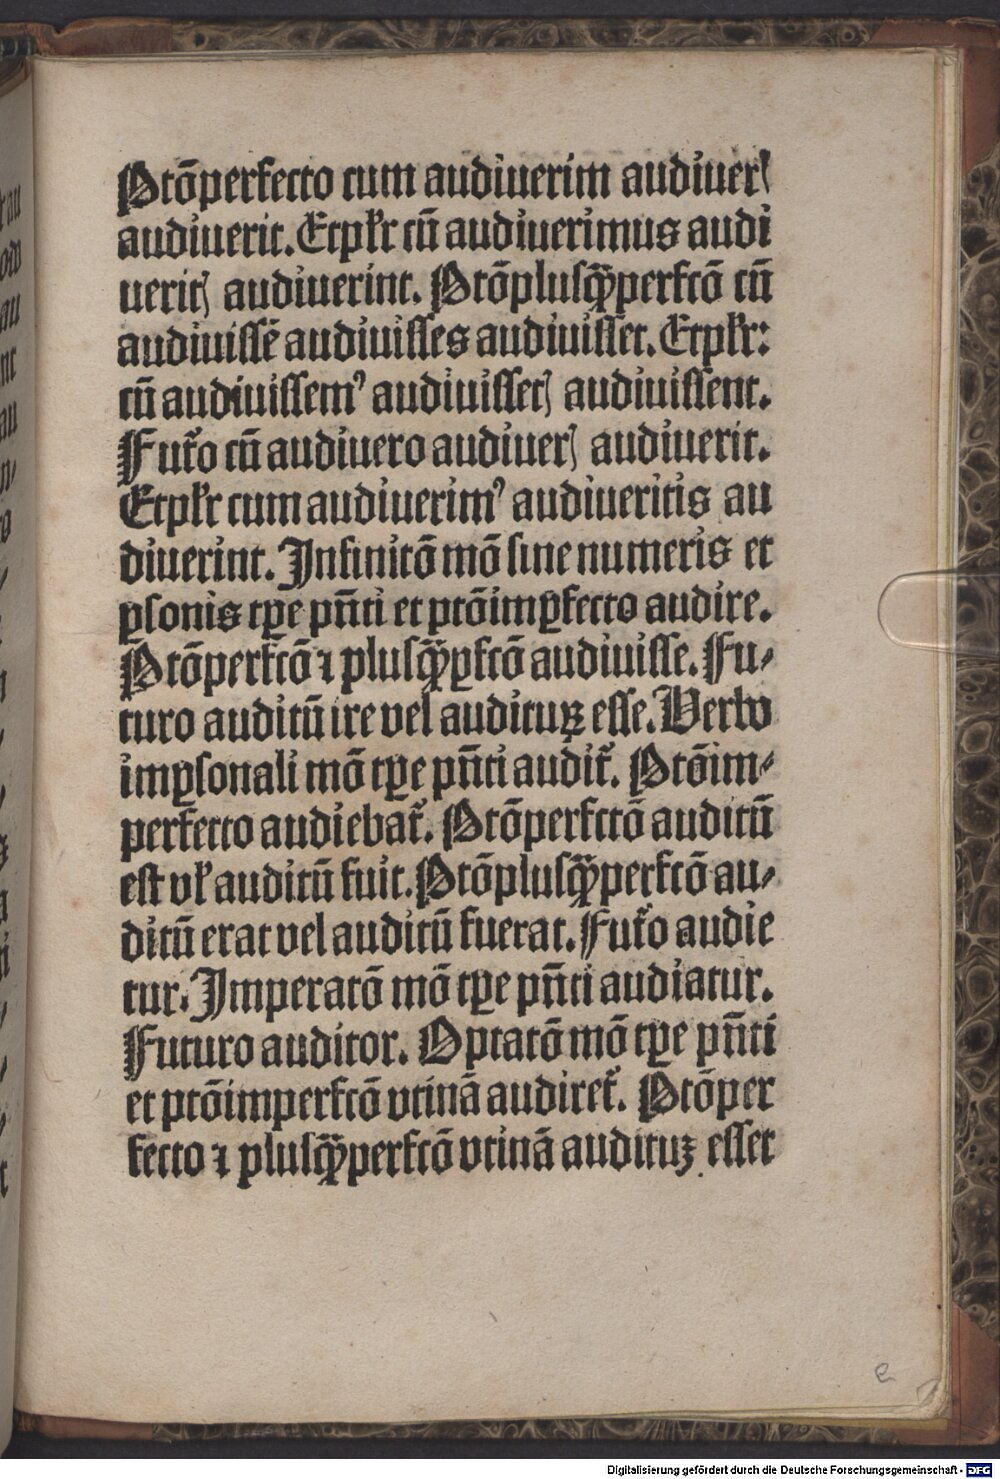 Ptōperfecto cum audiuerim audiuerꝭ
audiuerit. Etpłr cū audiuerimus audi
ueritꝭ audiuerint. Ptōplusꝙ̄perfctō cū
audiuissē audiuisses audiuisset. Etpłr:
cū audiuissemꝰ audiuissetꝭ audiuissent.
Futo᷑ cū audiuero audiuerꝭ audiuerit.
Etpłr cum audiuerimꝰ audiueritis au
diuerint. Infinitō mō sine numeris et
ꝑsonis tꝑe pn̄ti et ptōimꝑfecto audire.
Ptōperfctō ⁊ plusꝙ̄ꝑfctō audiuisse. Fu⸗
turo auditū ire vel audituꝝ esse. Verbo
imꝑsonali mō tꝑe pn̄ti audit᷑. Ptōim⸗
perfecto audiebat᷑. Ptōperfctō auditū
est vł auditū fuit. Ptōplusꝙ̄perfctō au⸗
ditū erat vel auditū fuerat. Futo᷑ audie
tur. Imperatō mō tꝑe pn̄ti audiatur.
Futuro auditor. Optatō mō tꝑe pn̄ti
et ptōimperfctō vtinā audiret᷑. Ptōper
fecto ⁊ plusꝙ̄perfctō vtinā audituꝫ esset
e
Digitalisierung gefördert durch die Deutsche Forschungsgemeinschaft - DFG